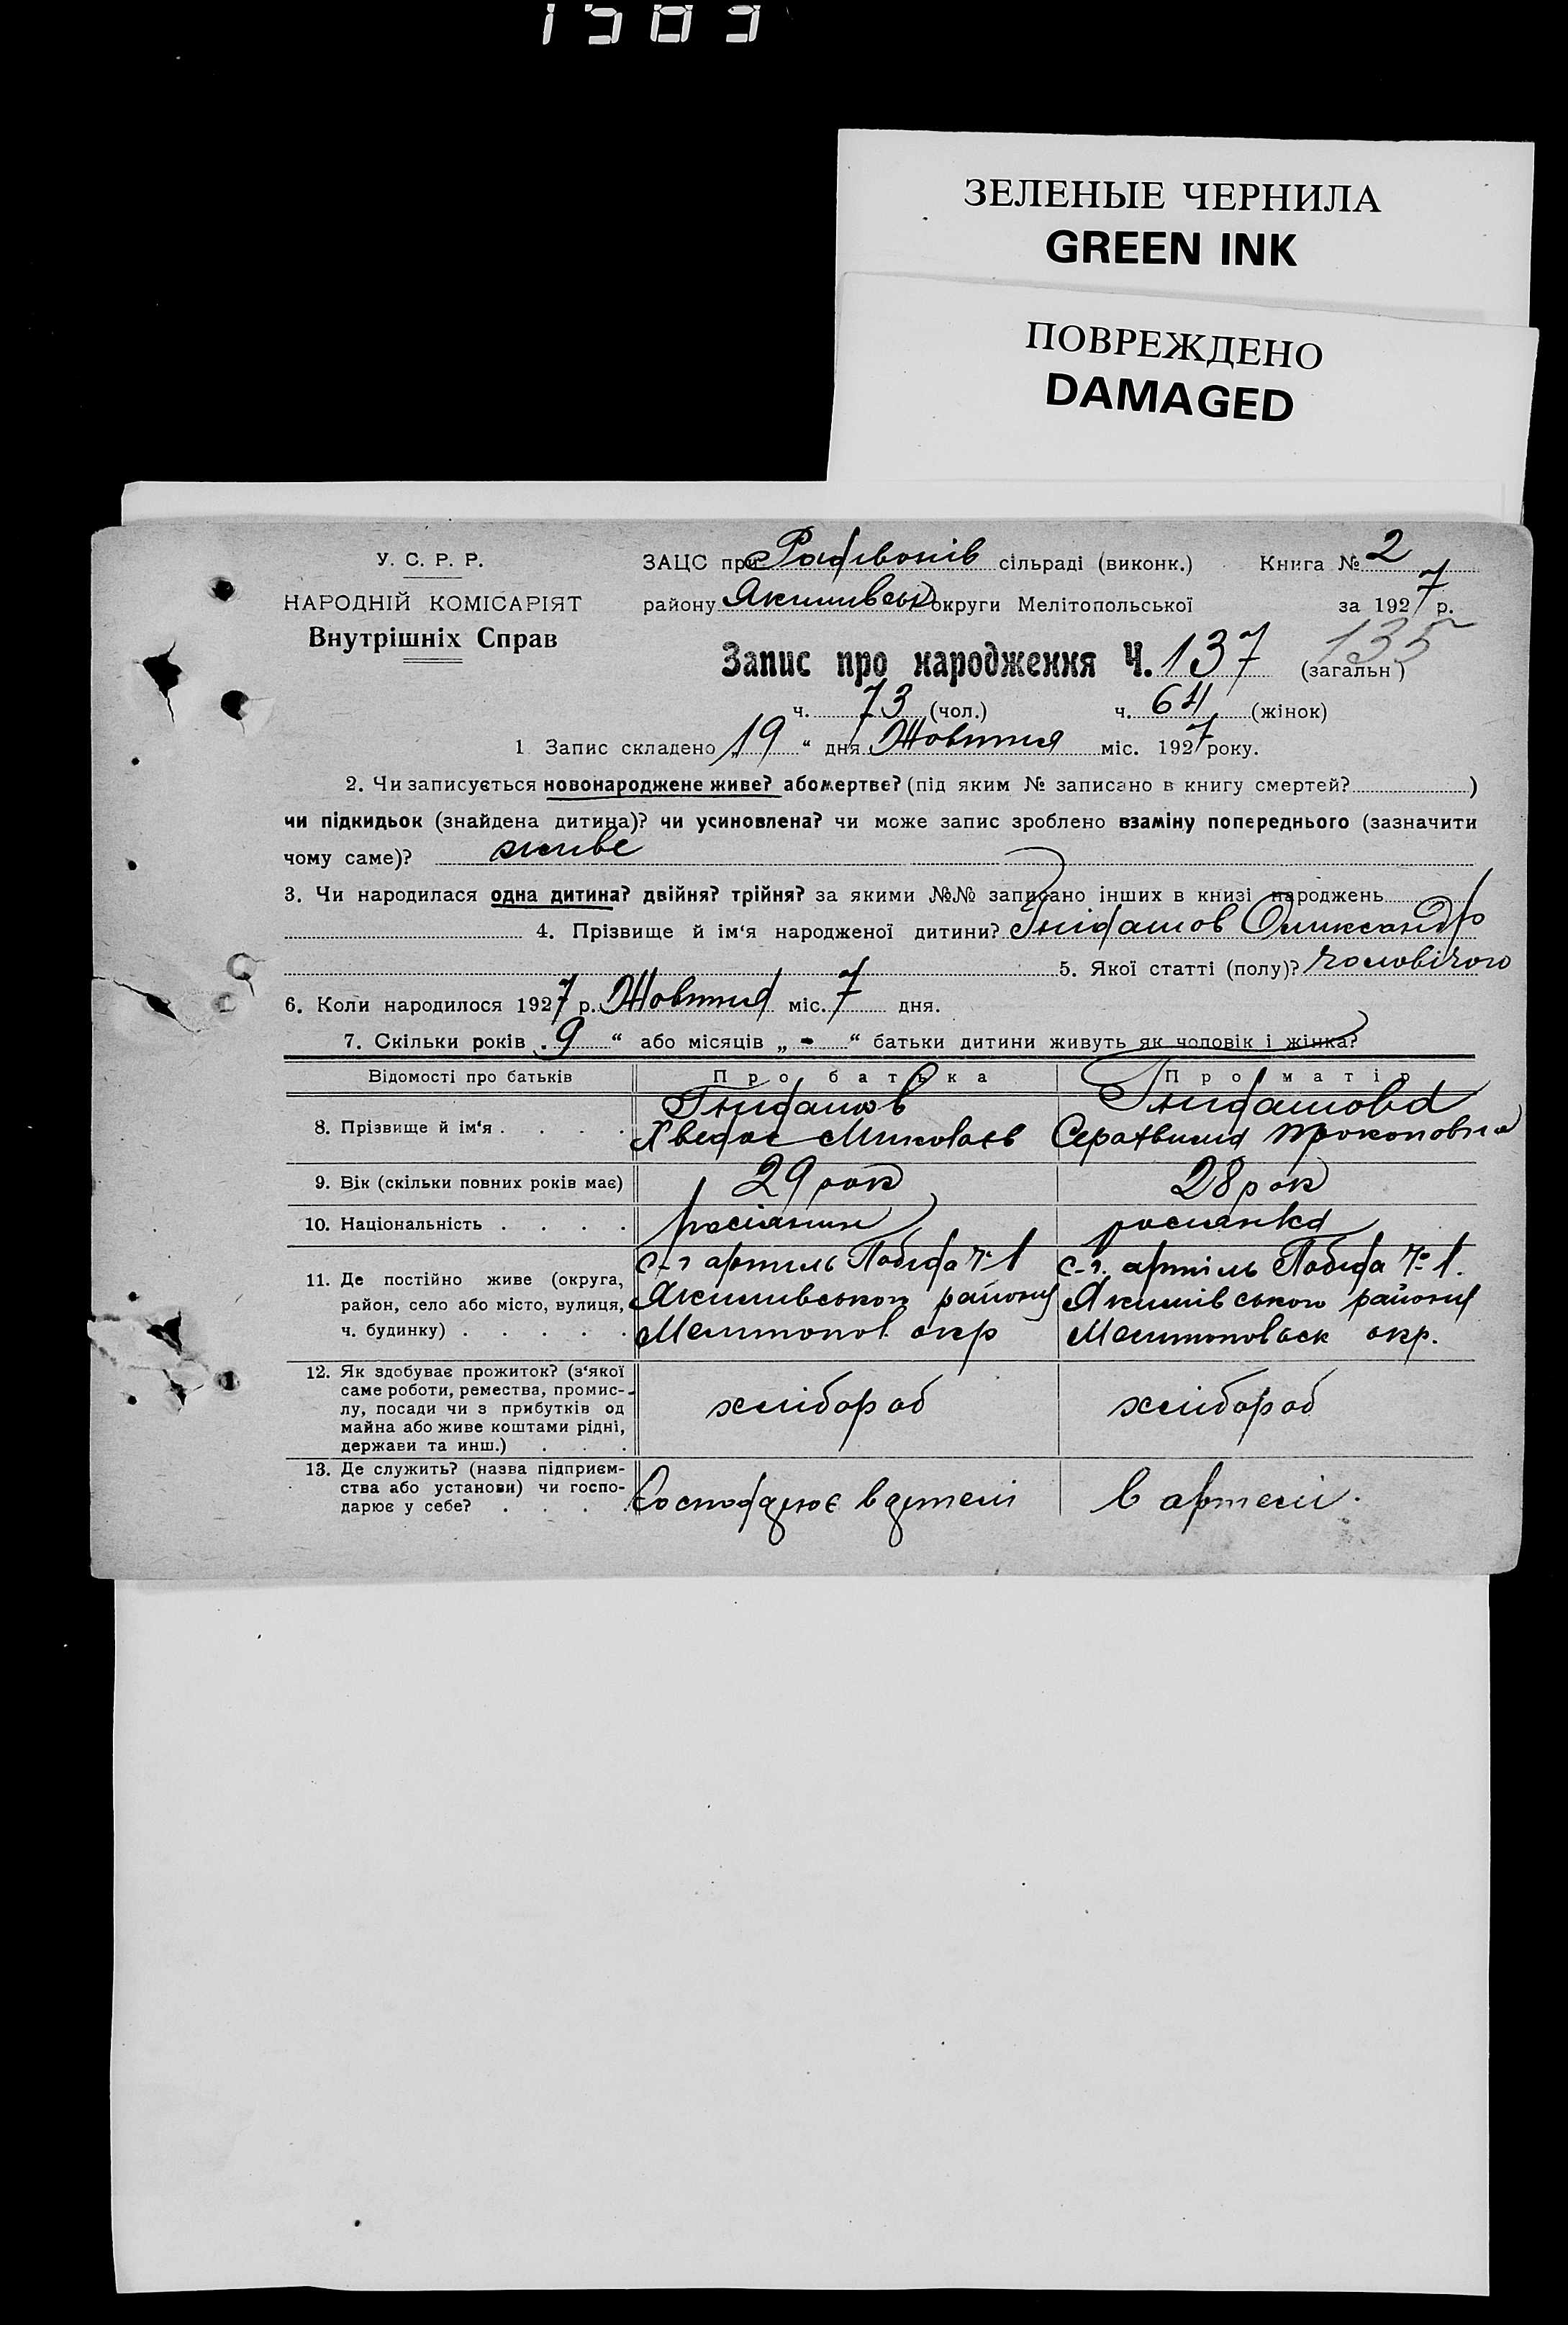 1303
ЗЕЛЕНЫЕ ЧЕРНИЛА
GREEN INK
ПОВРЕЖДЕНО
DAMAGED
У. С. Р. Р.
НАРОДНІЙ КОМІСАРІЯТ
Внутрішніх Справ
ЗАЦС при Радивонів сільраді (виконк.) Книга № 2
району Якимивськ округи Мелітопольської за 1927 р.
Запис про народження Ч. 137 (загальн) 135
ч. 73 (чол.) ч. 64 (жінок)
1 Запис складено „19“ дня Жовтня міс. 1927 року.
2. Чи записується новонароджене живе? або мертве? (під яким № записано в книгу смертей? )
чи підкидьок (знайдена дитина)? чи усиновлена? чи може запис зроблено взаміну попереднього (зазначити
чому саме)? живе
3. Чи народилася одна дитина? двійня? трійня? за якими №№ записано інших в книзі народжень
4. Прізвище й ім‘я народженої дитини? Гнидашов Оликсандр
5. Якої статті (полу)? чоловічого
6. Коли народилося 1927 р. Жовтня міс. 7 дня.
7. Скільки років „9“ або місяців „-“ батьки дитини живуть як чоловік і жінка?
Відомості про батьків Про батька Про матір
8. Прізвище й ім‘я . . . . Гнидашов Гнидашова
Хведос Миколаєв Серахвима Прокоповна
9. Вік (скільки повних років має) 29 рок 28 рок
10. Національність . . . . росіянин росиянка
11. Де постійно живе (округа, район, село або місто, вулиця, ч. будинку) . . . . .
с-г артиль Побида № 1 с-г. артіль Побида № 1.
Якимивського району Якимівського району
Мелитопол окр Мелитопольск окр.
12. Як здобуває прожиток? (з‘якої
саме роботи, ремества, промис-
лу, посади чи з прибутків од
майна або живе коштами рідні,
держави та инш.) . . .
хлібороб хлібороб
13. Де служить? (назва підприєм-
ства або установи) чи госпо-
дарює у себе? . . . .
Господарює в артели в артели.